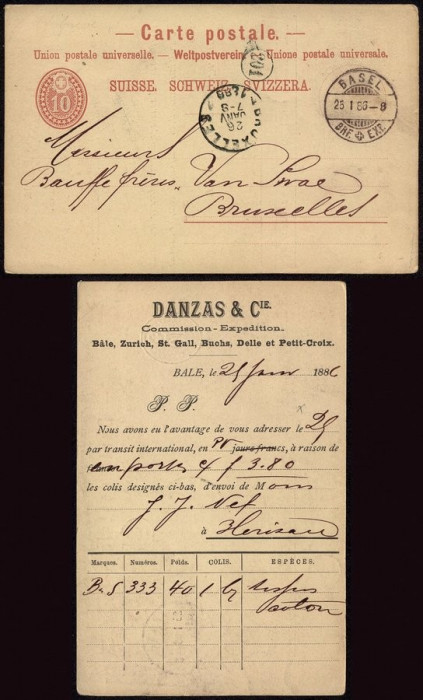 — Carte postale. —
Union postale universelle. — Weltpostverein. — Unione postale universale.
SUISSE. SCHWEIZ. SVIZZERA.
10
201
BRUXELLES 1
26
JANV
7-8
1886
BASEL
25 I 86-8
BRF. EXP.
Messieurs
Bauffe frères, Van
Bruxelles
DANZAS & CIE.
Commission - Expedition.
Bâle, Zurich, St. Gall, Buchs, Delle et Petit-Croix.
BALE, le 25 Janv 1886
P. P.
Nous avons eu l'avantage de vous adresser le 25
par transit international, en PV jours francs, à raison de
en port c/ f 3.80
les colis designés ci-bas, d'envoi de Mons
J. J. Nef
à Herisau
Marques. Numéros. Poids. COLIS. ESPÈCES.
B. S 333 40 1